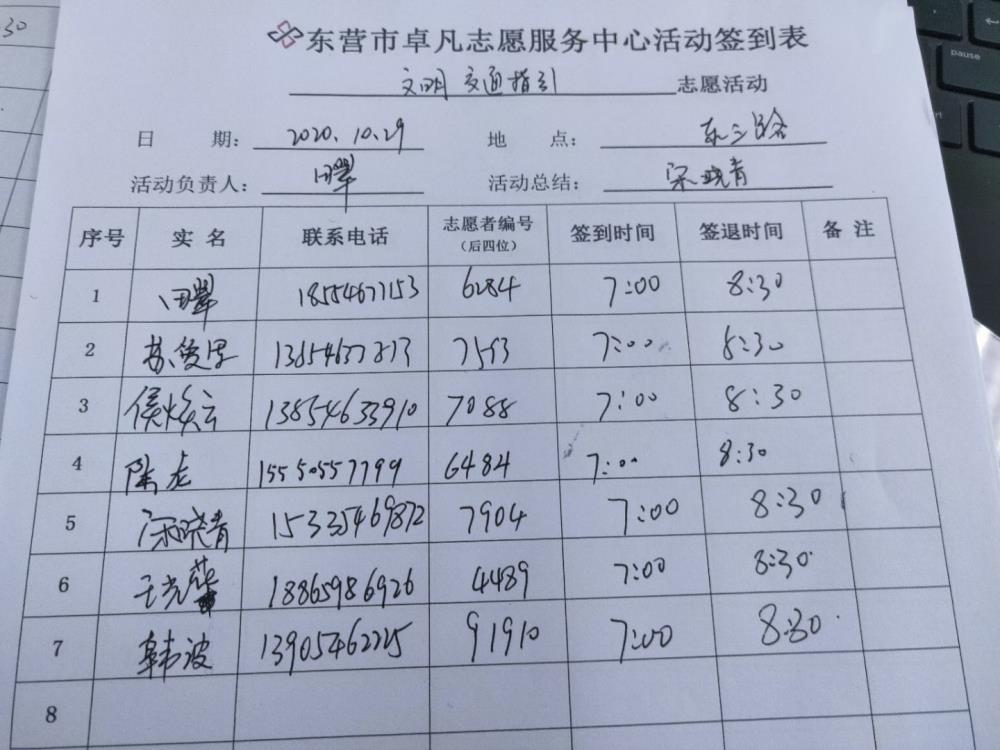 东营市卓凡志愿服务中心活动签到表
文明交通指引 志愿活动
日 期: 2020.10.29 地 点: 东三路
活动负责人: 田翠 活动总结: 宋晓青
序号 实 名 联系电话 志愿者编号(后四位) 签到时间 签退时间 备 注
1 田翠 18554677153 6284 7:00 8:30
2 苏爱 13854637873 7593 7:00 8:30
3 侯焕云 13854633910 7088 7:00 8:30
4 陈龙 15550557799 6484 7:00 8:30
5 宋晓青 15335469872 7904 7:00 8:30
6 王光 18865986926 4489 7:00 8:30
7 韩波 13905462225 91910 7:00 8:30
8
30
pause